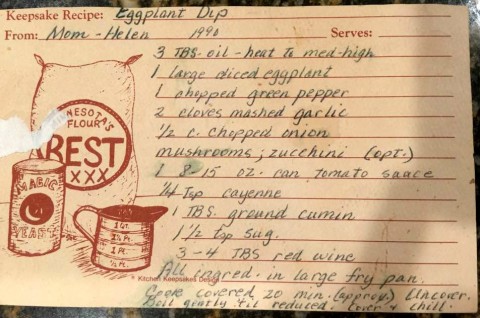 Keepsake Recipe: Eggplant Dip
From: Mom - Helen 1990 Serves:
3 TBS. oil - heat to med-high
1 large diced eggplant
1 chopped green pepper
2 cloves mashed garlic
1/2 c. chopped onion
mushrooms; zucchini (opt.)
1 8-15 oz. can tomato sauce
1/4 tsp cayenne
1 TBS. ground cumin
1 1/2 tsp sug.
3-4 TBS red wine
All ingred. in large fry pan.
Cook covered 20 min. (approx.) Uncover.
Boil gently 'til reduced. Cover & chill.
NESOTA'S
FLOUR
BEST
XXX
MAGIC
YEAST
1 QT.
1 PT.
1/2 PT.
© Kitchen Keepsakes Design